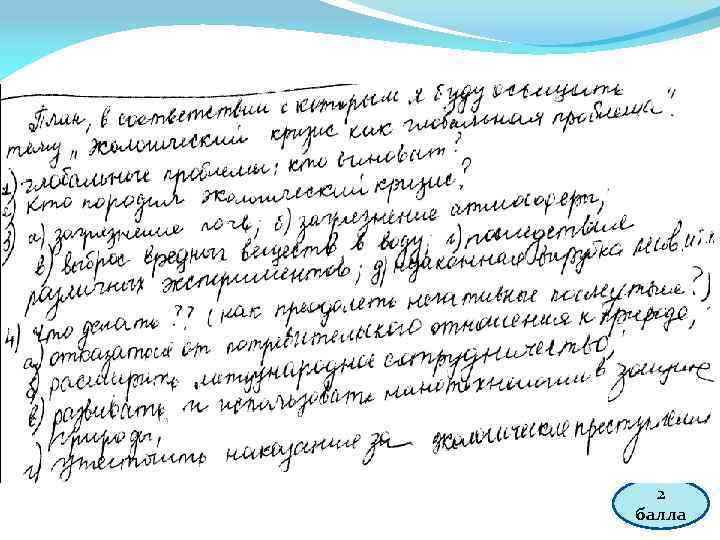 План, в соответствии с которым я буду освещать
тему „Экологический кризис как глобальная проблема".
1) глобальные проблемы: кто виноват?
2) Кто породил экологический кризис?
3) а) загрязнение почв; б) загрязнение атмосферы;
в) выброс вредных веществ в воду; г) последствия
различных экспериментов; д) незаконная вырубка лесов и т.п.
4) Что делать?? (как преодолеть негативные последствия?)
а) отказаться от потребительского отношения к природе;
б) расширить международное сотрудничество;
в) развивать и использовать нанотехнологии в защите
природы;
г) ужесточить наказание за экологические преступления
2
балла